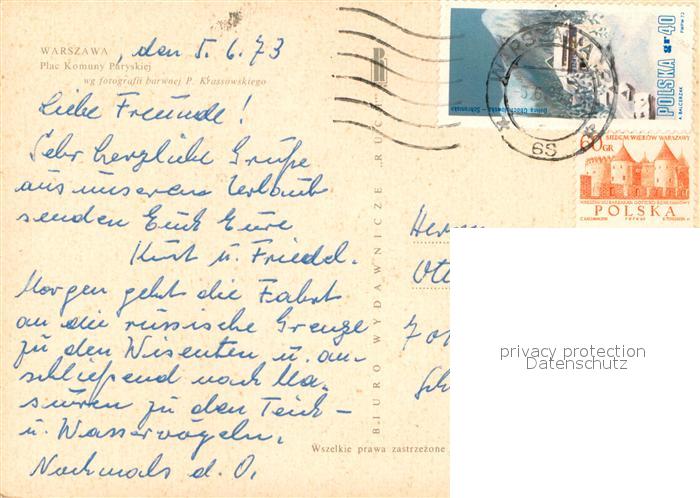 WARSZAWA, den 5.6.73
Plac Komuny Paryskiej
wg fotografii barwnej P. Krassowskiego
Liebe Freunde!
Sehr herzliche Grüße
aus unserem Urlaub
senden Euch Eure
Kurt u. Friedel.
Morgen geht die Fahrt
an die russische Grenze
zu den Wisenten u. an-
schließend nach Ma-
suren zu den Teich-
u. Wasservögeln.
Nochmals d. O.
BIURO WYDAWNICZE „RUCH"
Wszelkie prawa zastrzeżone
POLSKA gr 40
Dolina Chochołowska – Schronisko
A. BALCERZAK
WARSZAWA
5.6
68
60GR
SIEDEM WIEKÓW WARSZAWY
POLSKA
Herrn
Ott
701
Sch
privacy protection
Datenschutz